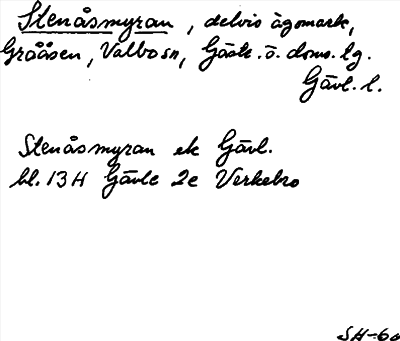 Stenåsmyran, delvis ägomark,
Grååsen, Valbo sn, Gästr. ö. doms. lg.
Gävl. l.
Stenåsmyran ek Gävl.
bl. 13H Gävle 2e Verkebro
SH-60